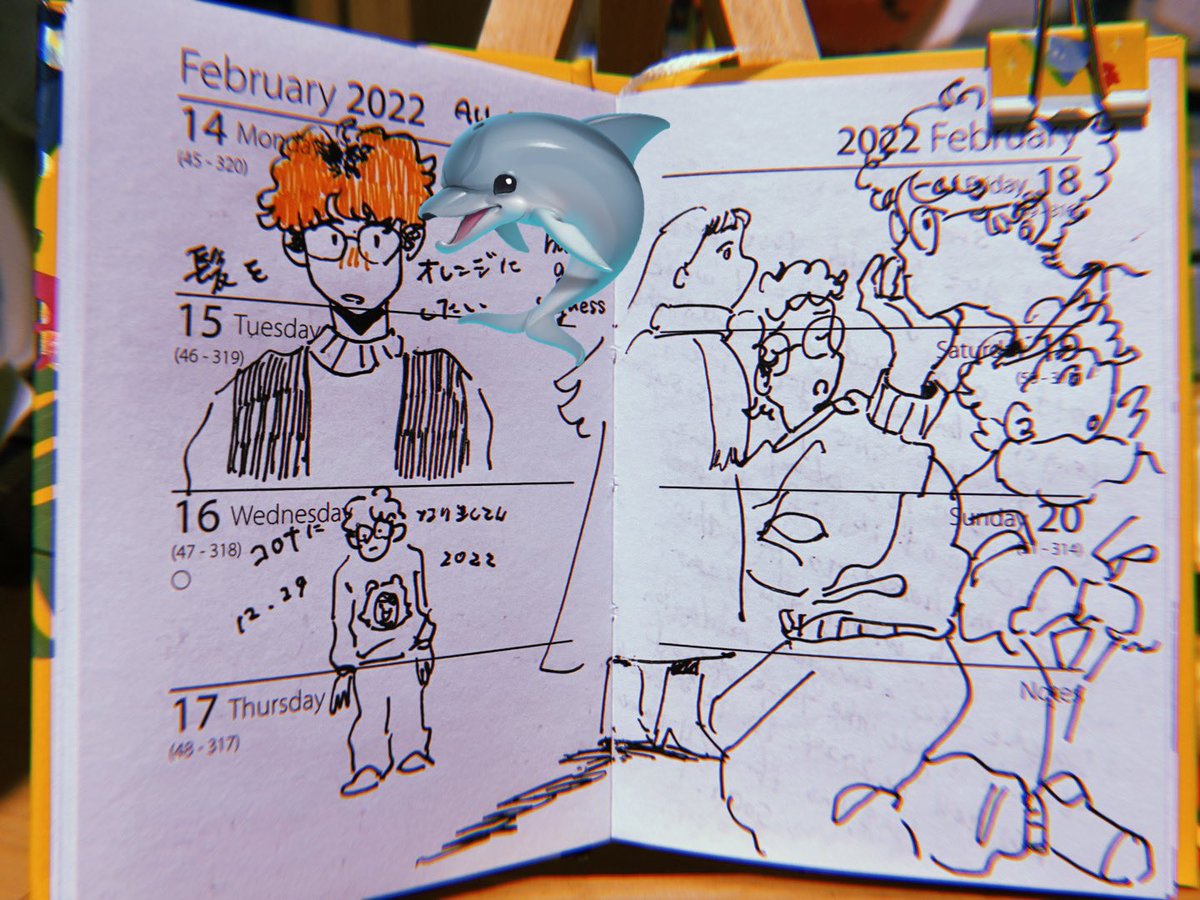 February 2022
14 Monday
(45 - 320)
髪を
オレンジに
したい
15 Tuesday
(46 - 319)
16 Wednesday
(47 - 318)
20才に
なりました
12.29
2022
17 Thursday
(48 - 317)
2022 February
18
Saturday 19
Sunday 20
Notes